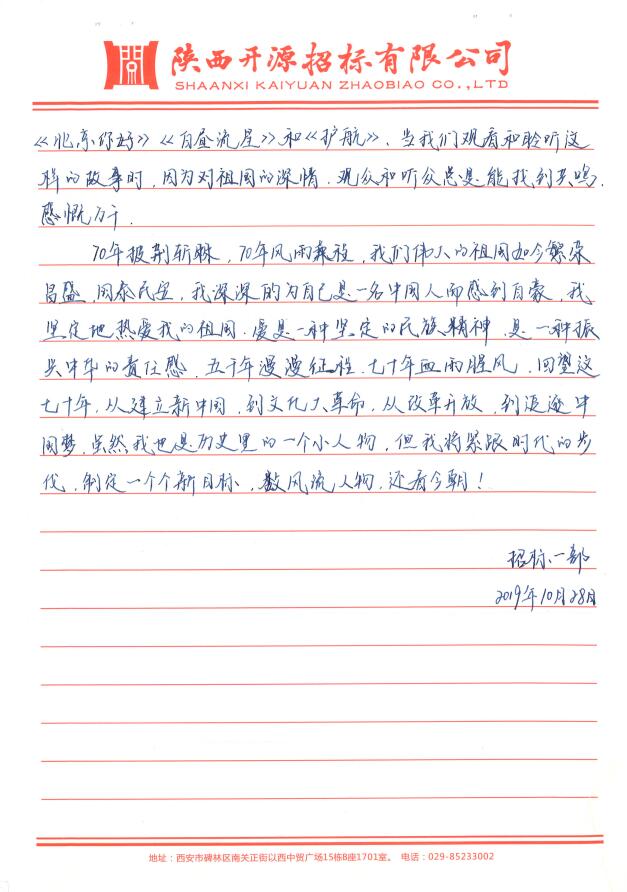 陕西开源招标有限公司
SHAANXI KAIYUAN ZHAOBIAO CO.,LTD
《北京你好》《白昼流星》和《护航》、当我们观看和聆听这
样的故事时,因为对祖国的深情,观众和听众总是能找到共鸣,
感慨万千.
70年披荆斩棘,70年风雨兼程,我们伟大的祖国如今繁荣
昌盛,国泰民安,我深深的为自己是一名中国人而感到自豪,我
坚定地热爱我的祖国.爱是一种坚定的民族精神,是一种振
兴中华的责任感,五千年漫漫征程.七十年血雨腥风,回望这
七十年,从建立新中国,到文化大革命,从改革开放,到追逐中
国梦,虽然我也是历史里的一个小人物,但我将紧跟时代的步
伐,制定一个个新目标,数风流人物,还看今朝!
招标一部
2019年10月28日
地址:西安市碑林区南关正街以西中贸广场15栋B座1701室。 电话:029-85233002